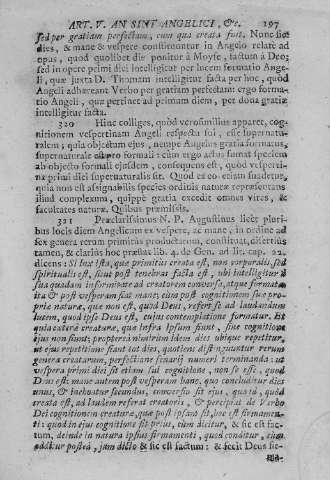 ART. V. AN SINT ANGELICI, &c. 197
sed per gratiam perfectam, cum qua creata fuit. Nunc sic:
dies, & mane & vespere constituuntur in Angelo relatè ad
opus, quod quolibet die ponitur à Moyse, factum à Deo;
sed in opere primi diei intelligitur per lucem formatio Ange-
li, quæ juxta D. Thomam intelligitur facta per hoc, quòd
Angeli adhæreant Verbo per gratiam perfectam: ergo forma-
tio Angeli, quæ pertinet ad primam diem, per dona gratiæ
intelligitur facta.
320 Hinc colliges, quòd verosimilius apparet, cog-
nitionem vespertinam Angeli respectu sui, esse supernatu-
ralem; quia objectum ejus, nempe Angelus gratia formatus,
supernaturale est pro formali: cùm ergo actus sumat speciem
ab objecto formali ejusdem, consequens est, quòd vesperti-
na primi diei supernaturalis sit. Quod ex eo etiam suadetur,
quia non est assignabilis species orditis naturæ repræsentans
illud complexum, quippè gratia excedit omnes vires, &
facultates naturæ. Quibus præmissis.
321 Præclarissimus N. P. Augustinus licèt pluri-
bus locis diem Angelicam ex vespere, ac mane, in ordine ad
sex genera rerum primitùs productarum, constituat, disertiùs
tamen, & clariùs hoc præstat lib. 4. de Gen. ad lit. cap. 22.
dicens: Si lux ista, quæ primitùs creata est, non corporalis, sed
spiritualis est, sicut post tenebras facta est, ubi intelligitur à
sua quadam informitate ad creatorem conversa, atque formata:
ita & post vesperam fiat mane; cùm post cognitionem suæ pro-
priæ naturæ, quæ non est, quod Deus, refert se ad laudandum
lucem, quod ipse Deus est, cujus contemplatione formatur. Et
quia cæteræ creaturæ, quæ infra ipsum fiunt, sine cognitione
ejus non fiunt; proptereà nimirum idem dies ubique repetitur,
ut ejus repetitione fiant tot dies, quotiens distinguuntur rerum
genera creatarum, perfectione senarii numeri terminanda: ut
vespera primi diei sit etiam sui cognitione, non se esse, quod
Deus est: mane autem post vesperam hanc, quo concluditur dies
unus, & inchoatur secundus, conversio sit ejus, quâ id, quod
creata est, ad laudem referat creatoris, & percipiat de Verbo
Dei cognitionem creaturæ, quæ post ipsam fit, hoc est firmamen-
ti: quod in ejus cognitione fit prius, cùm dicitur, & sic est fac-
tum, deinde in natura ipsius firmamenti, quod conditur, cùm
additur postea, jam dicto & sic est factum: & fecit Deus fir-